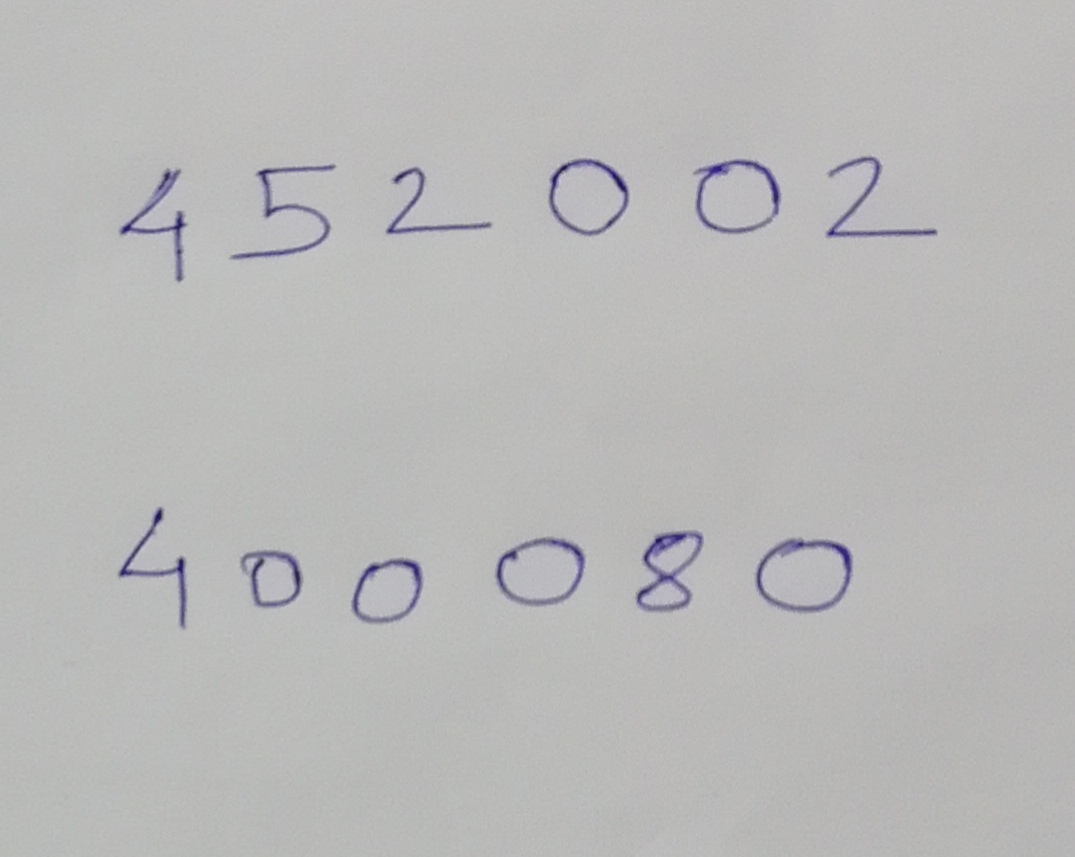 452002
400080